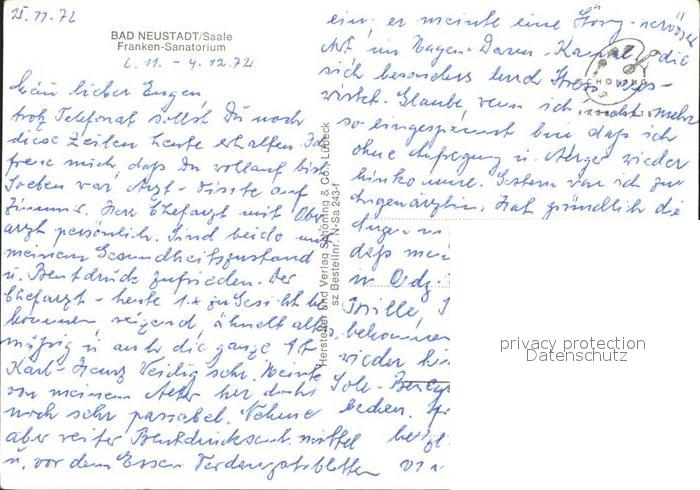 25.11.72
BAD NEUSTADT/Saale
Franken-Sanatorium
6.11. - 4.12.72
Mein lieber Eugen,
trotz Telefonat sollst Du noch
diese Zeilen heute erhalten. Ich
freue mich, daß Du vollauf bist
Soeben war Arzt-Visite auf
Zimmer. Herr Chefarzt mit Ober
arzt persönlich. Sind beide mit
meinem Gesundheitszustand
u. Blutdruck zufrieden. Der
Chefarzt - heute 1 x zu Gesicht be
kommen, reizend, ähnelt alters
mäßig u. auch die ganze Art
Karl-Heinz sehr. Meinte
von meinem Alter her doch
noch sehr passabel. Nehme
aber weiter Blutdrucksenk. mittel
u. vor dem Essen Verdauungstabletten
ein, er meinte eine nervöse
Art im Magen-Darm-Kanal, die
sich besonders durch Stress aus-
wirket. Glaube, wenn ich nicht mehr
so eingespannt bin daß ich
ohne Aufregung u. Aerger wieder
hinkomme. Gestern war ich zur
Augenärztin. Hat gründlich die
Augen
daß mei
in Ordg.
Brille,
bekommen
wieder
Sole-
beden.
SCHÖNING
Hersteller und Verlag Schöning & Co., Lübeck
sz Bestellnr. N-Sa 243-f
privacy protection
Datenschutz